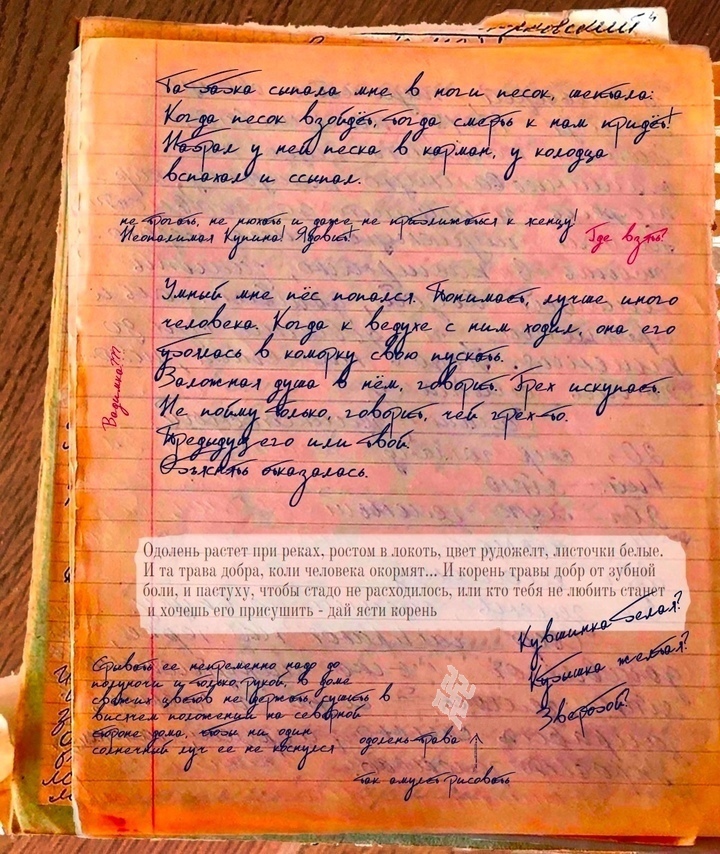 Та бабка сыпала мне в ноги песок, шептала:
Когда песок взойдёт, тогда смерть к нам придёт!
Набрал у ней песка в карман, у колодца
вспахал и ссыпал.
не трогать, не нюхать и даже не приближаться к женцу!
Неопалимая Купина! Ядовит!
Где взять?
Умный мне пёс попался. Понимает, лучше иного
человека. Когда к ведухе с ним ходил, она его
боялась в коморку свою пускать.
Заложная душа в нём, говорит. Грех искупает.
Не пойму только, говорит, чей грех-то.
Предыдущего или твой.
Объяснять отказалась.
Вадимка???
Одолень растет при реках, ростом в локоть, цвет рудожелт, листочки белые.
И та трава добра, коли человека окормят... И корень травы добр от зубной
боли, и пастуху, чтобы стадо не расходилось, или кто тебя не любить станет
и хочешь его присушить - дай ясти корень
Кувшинка белая?
Кубышка желтая?
Зверобой?
Срывать ее непременно надо до
полуночи и только рукой, в доме
срезаных цветов не держать, сушить в
висячем положении на северной
стороне дома, чтобы ни один
солнечный луч ее не коснулся
одолень-трава
так амулет рисовать